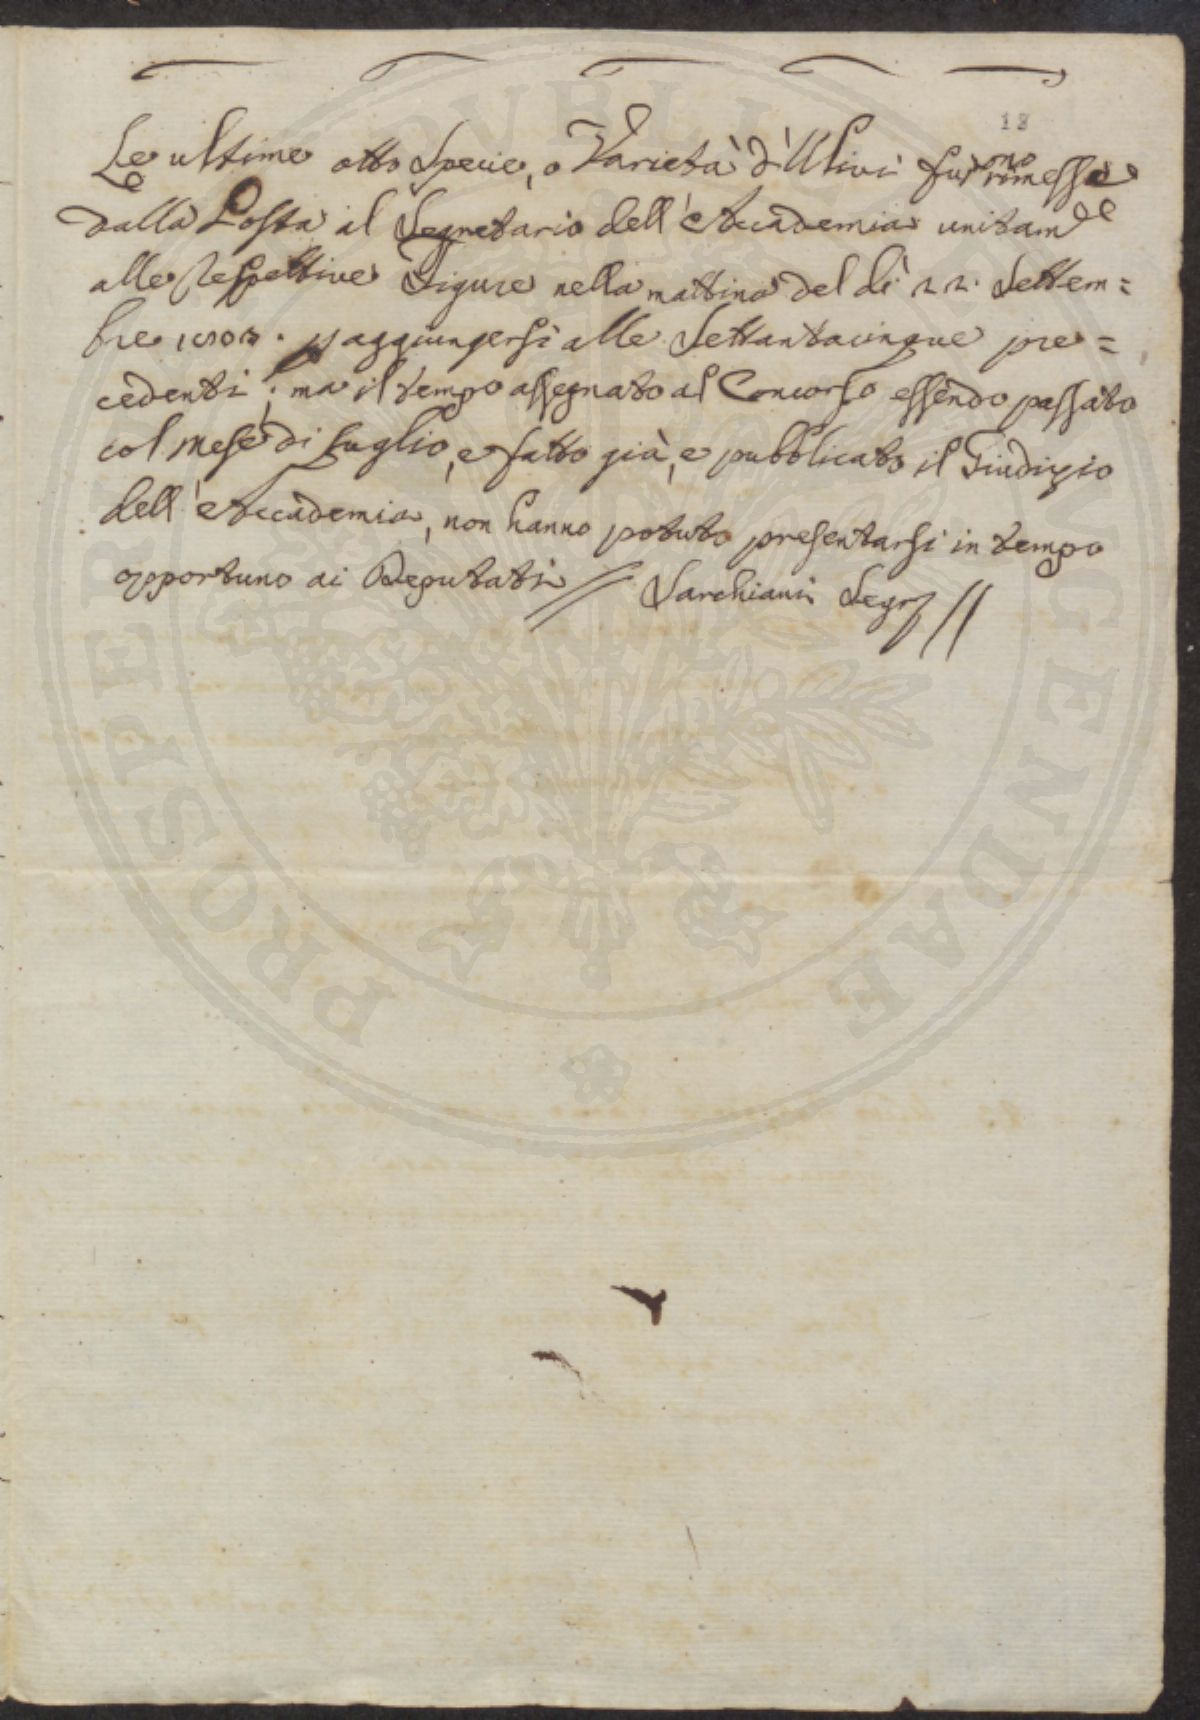 18
Le ultime otto Specie, o Varietà d'Ulivi furno rimesse
dalla Posta al Segretario dell'Accademia unitamde
alle respettive Figure nella mattina del dì 22. Settem=
bre p aggiungersi alle Settantacinque pre=
cedenti; ma il tempo assegnato al Concorso essendo passato
col mese di Luglio, e fatto già, e pubblicato il Giudizio
dell'Accademia, non hanno potuto presentarsi in tempo
opportuno ai Deputati // Sarchiani Segr //
PROSPERITATI PUBLICAE AUGENDAE